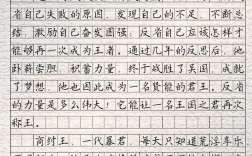 省自己失败的原因，发现自己的不足，不断总
结，激励自己奋发图强；反省自己应该怎样才
能够再一次成为王者。通过几年的反思后，他
卧薪崇胆，积蓄力量，终于战胜了吴国，成就
了梦想。他也因此成为一名贤能的君王，反省
的力量是多么伟大！它能让一名王国之君再次
称王。
商纣王，一代暴君，每天只知道荒淫车乐